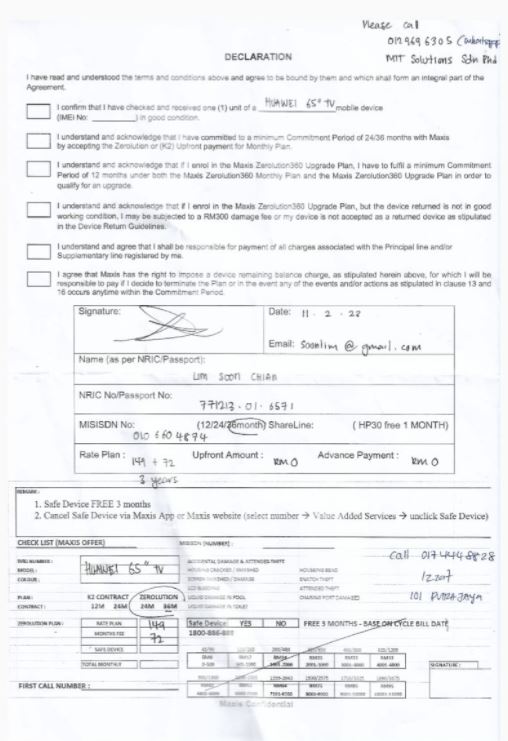 Please call
012 969 6305 (whatsapp
MIT Solutions Sdn Bhd
DECLARATION
I have read and understood the terms and conditions above and agree to be bound by them and which shall form an integral part of the Agreement.
I confirm that I have checked and received one (1) unit of a HUAWEI 65" TV mobile device
(IMEI No: ) in good condition.
I understand and acknowledge that I have committed to a minimum Commitment Period of 24/36 months with Maxis
by accepting the Zerolution or (K2) Upfront payment for Monthly Plan.
I understand and acknowledge that if I enrol in the Maxis Zerolution360 Upgrade Plan, I have to fulfil a minimum Commitment
Period of 12 months under both the Maxis Zerolution360 Monthly Plan and the Maxis Zerolution360 Upgrade Plan in order to
qualify for an upgrade.
I understand and acknowledge that if I enrol in the Maxis Zerolution360 Upgrade Plan, but the device returned is not in good
working condition, I may be subjected to a RM300 damage fee or my device is not accepted as a returned device as stipulated
in the Device Return Guidelines.
I understand and agree that I shall be responsible for payment of all charges associated with the Principal line and/or
Supplementary line registered by me.
I agree that Maxis has the right to impose a device remaining balance charge, as stipulated herein above, for which I will be
responsible to pay if I decide to terminate the Plan or in the event any of the events and/or actions as stipulated in clause 13 and
16 occurs anytime within the Commitment Period.
Signature: Date: 11 . 2 . 28
Email: Soonlim @ gmail.com
Name (as per NRIC/Passport):
LIM SOON CHIAN
NRIC No/Passport No:
771213 - 01 - 6571
MISISDN No: (12/24/36month) ShareLine: ( HP30 free 1 MONTH)
010 660 4874
Rate Plan : 149 + 72 Upfront Amount : RM 0 Advance Payment : RM 0
3 years
REMARK :
1. Safe Device FREE 3 months
2. Cancel Safe Device via Maxis App or Maxis website (select number → Value Added Services → unclick Safe Device)
CHECK LIST (MAXIS OFFER) MISISDN (NUMBER) :
Call 017 4448828
IMEI NUMBER : ACCIDENTAL DAMAGE & ATTENDED THEFT
MODEL : HUAWEI 65" TV HOUSING CRACKED / SMASHED HOUSING BEND
COLOUR : SCREEN CRACKED / DAMAGE SNATCH THEFT
LCD BLEEDING ATTENDED THEFT
PLAN : K2 CONTRACT ZEROLUTION LIQUID DAMAGE IN POOL CHARGING PORT DAMAGED
101 PUTRA JAYA
CONTRACT : 12M 24M 24M 36M LIQUID DAMAGE IN TOILET
ZEROLUTION PLAN : RATE PLAN 149 Safe Device YES NO FREE 3 MONTHS - BASE ON CYCLE BILL DATE
MONTHS FEE 72
SAFE DEVICE
TOTAL MONTHLY
SIGNATURE :
FIRST CALL NUMBER :
Maxis Confidential